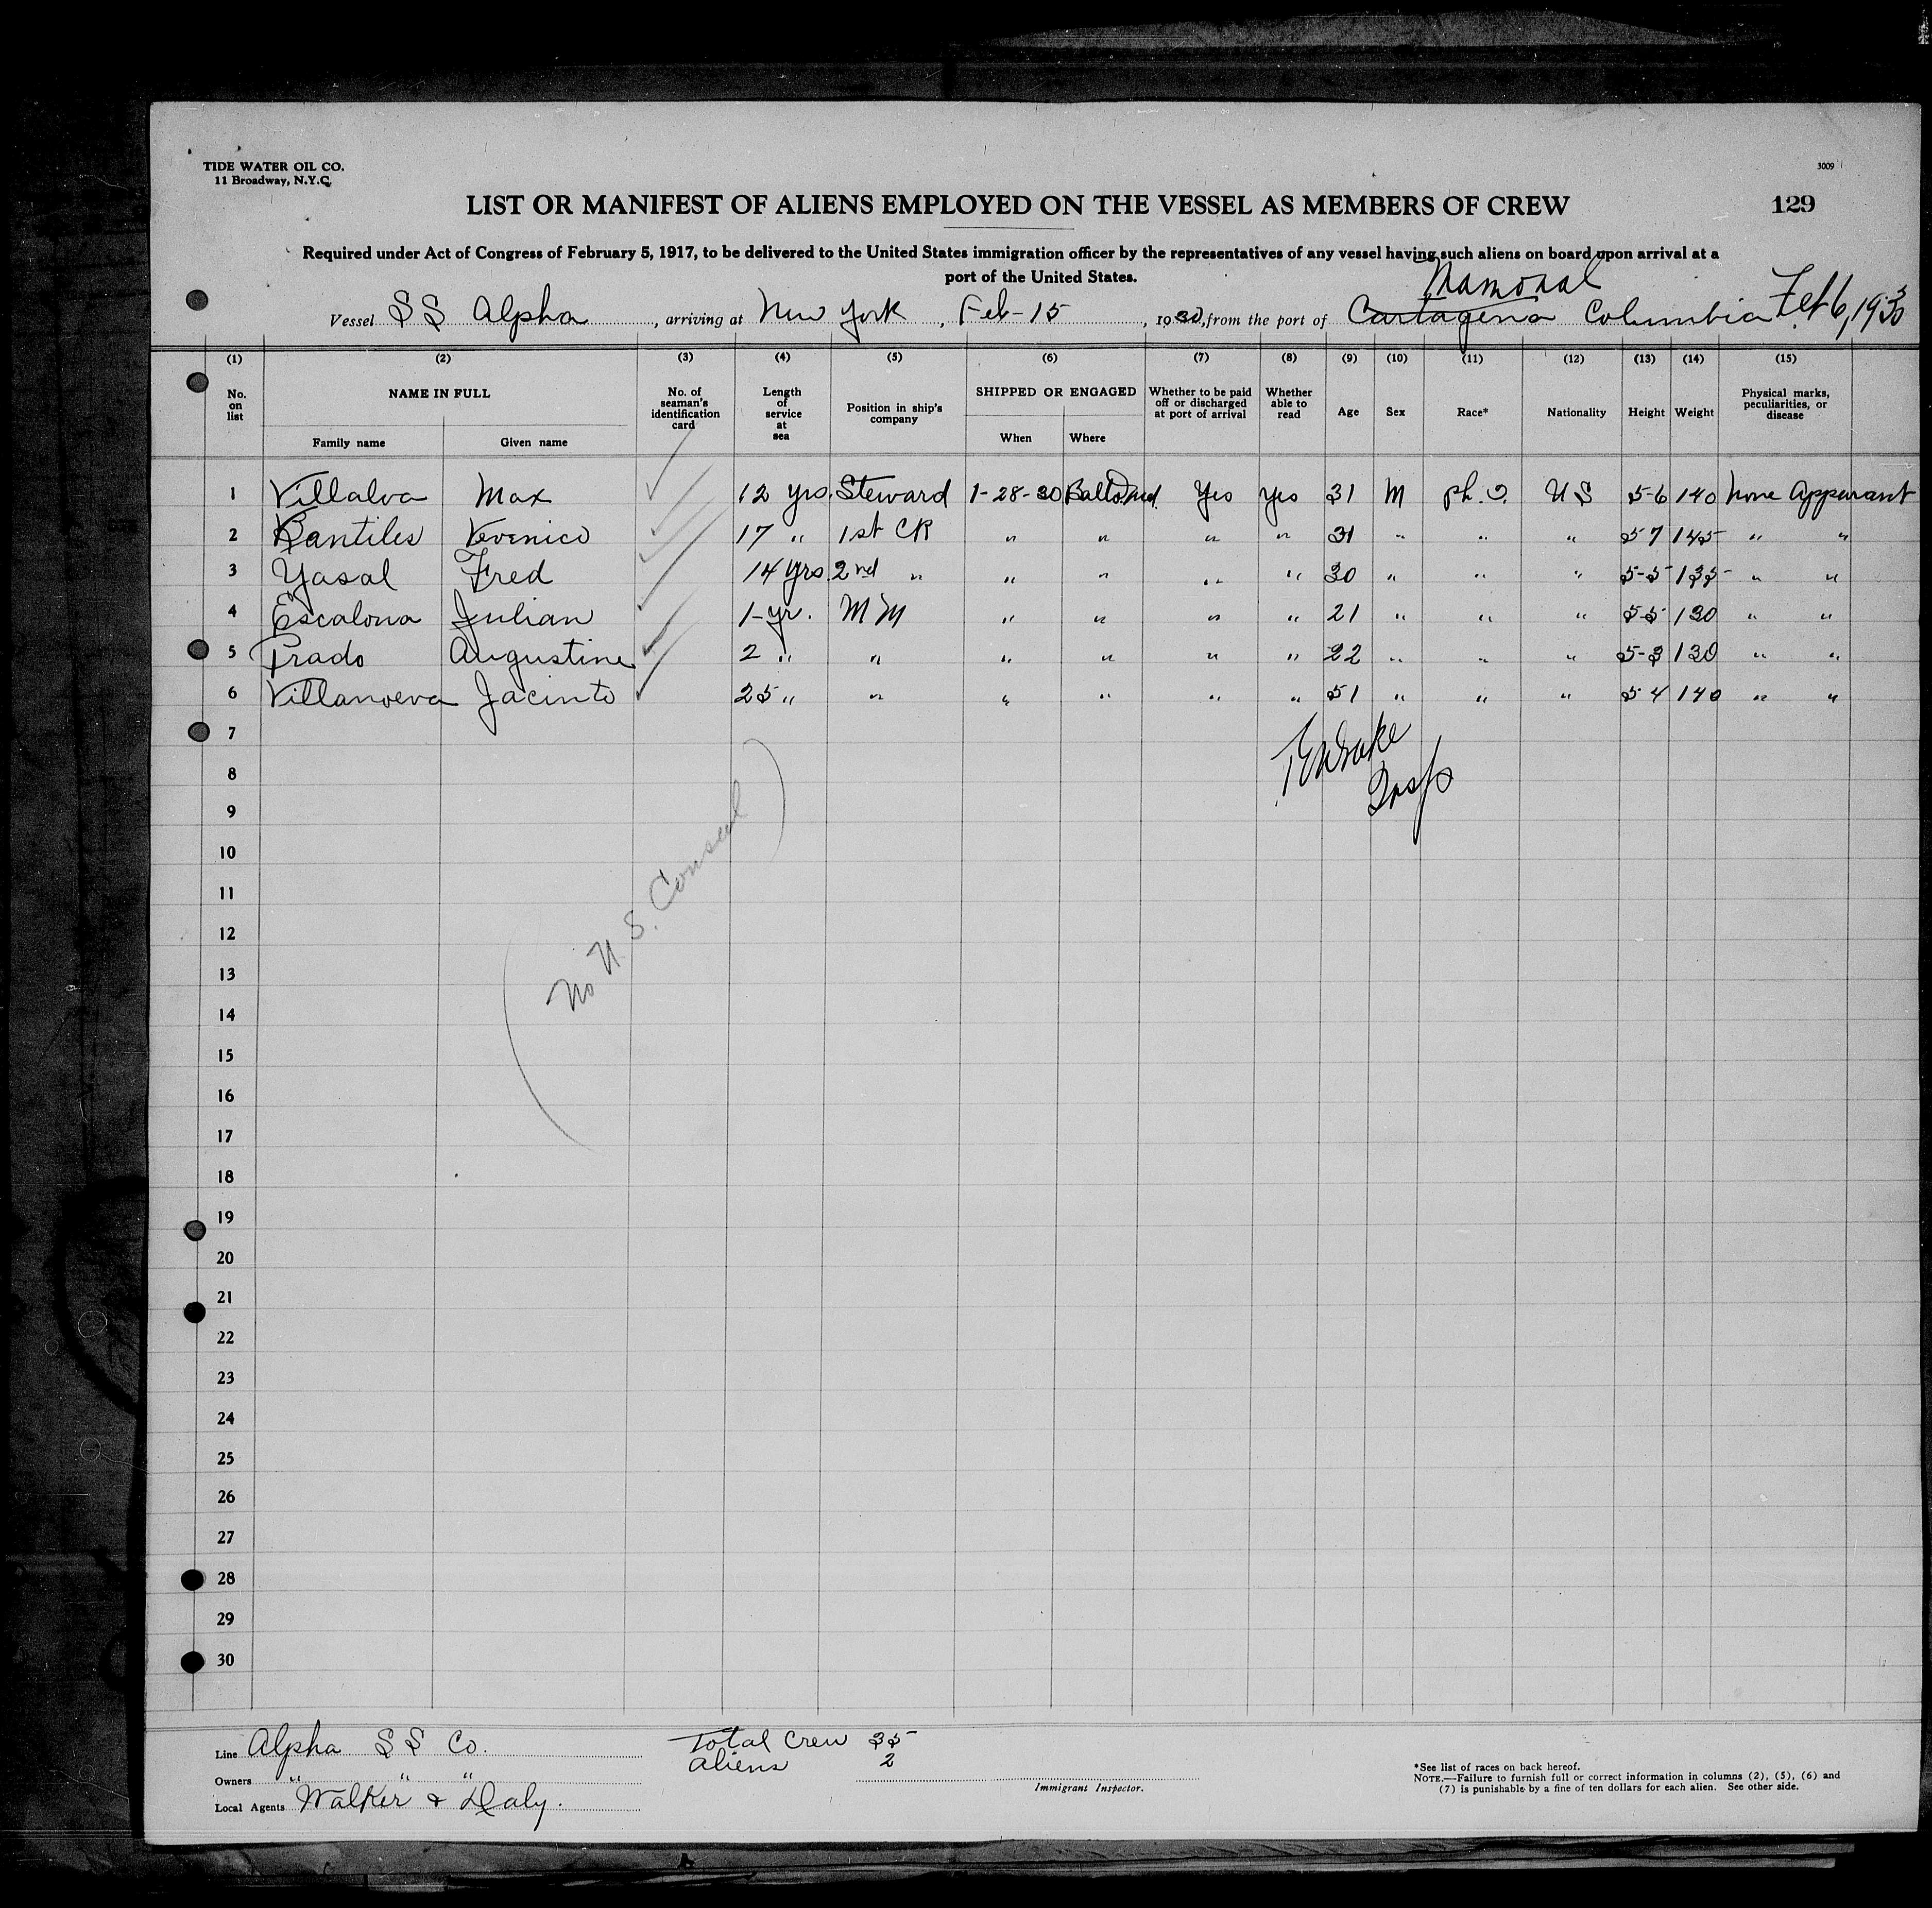 TIDE WATER OIL CO.
11 Broadway, N.Y.C.
3009
LIST OR MANIFEST OF ALIENS EMPLOYED ON THE VESSEL AS MEMBERS OF CREW
129
Required under Act of Congress of February 5, 1917, to be delivered to the United States immigration officer by the representatives of any vessel having such aliens on board upon arrival at a
port of the United States.
Mamonal
Vessel SS Alpha, arriving at New York, Feb-15, 1930, from the port of Cartagena Columbia Feb 6, 1930
(1) (2) (3) (4) (5) (6) (7) (8) (9) (10) (11) (12) (13) (14) (15)
No. on list
NAME IN FULL
Family name
Given name
No. of seaman's identification card
Length of service at sea
Position in ship's company
SHIPPED OR ENGAGED
When
Where
Whether to be paid off or discharged at port of arrival
Whether able to read
Age
Sex
Race*
Nationality
Height
Weight
Physical marks, peculiarities, or disease
1 Villalva Max 12 yrs. Steward 1-28-30 Balto. Md. Yes Yes 31 M Ph. I. US 5-6 140 None Apparant
2 Bantiles Verenico 17 " 1st CR " " " " 31 " " " 5 7 145 " "
3 Yasal Fred 14 yrs. 2nd " " " " " 30 " " " 5-5 135 " "
4 Escalona Julian 1-yr. MM " " " " 21 " " " 5-5 130 " "
5 Prado Augustine 2 " " " " " " 22 " " " 5-3 130 " "
6 Villanoeva Jacinto 25 " " " " " " 51 " " " 5 4 140 " "
7
8
9
10
11
12
13
14
15
16
17
18
19
20
21
22
23
24
25
26
27
28
29
30
Insp
(No U.S. Consul)
Line Alpha SS Co.
Owners " " "
Local Agents Walker & Daly.
Total Crew 35
aliens 2
Immigrant Inspector.
*See list of races on back hereof.
NOTE.—Failure to furnish full or correct information in columns (2), (5), (6) and
(7) is punishable by a fine of ten dollars for each alien. See other side.